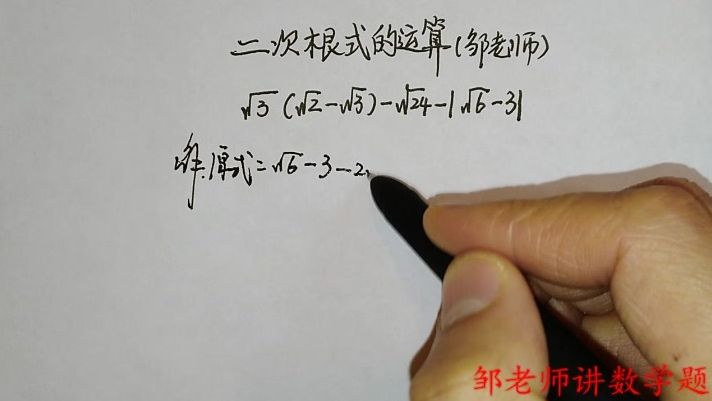 二次根式的运算(邹老师)
√3(√2-√3)-√24-|√6-3|
解:原式=√6-3-2
邹老师讲数学题